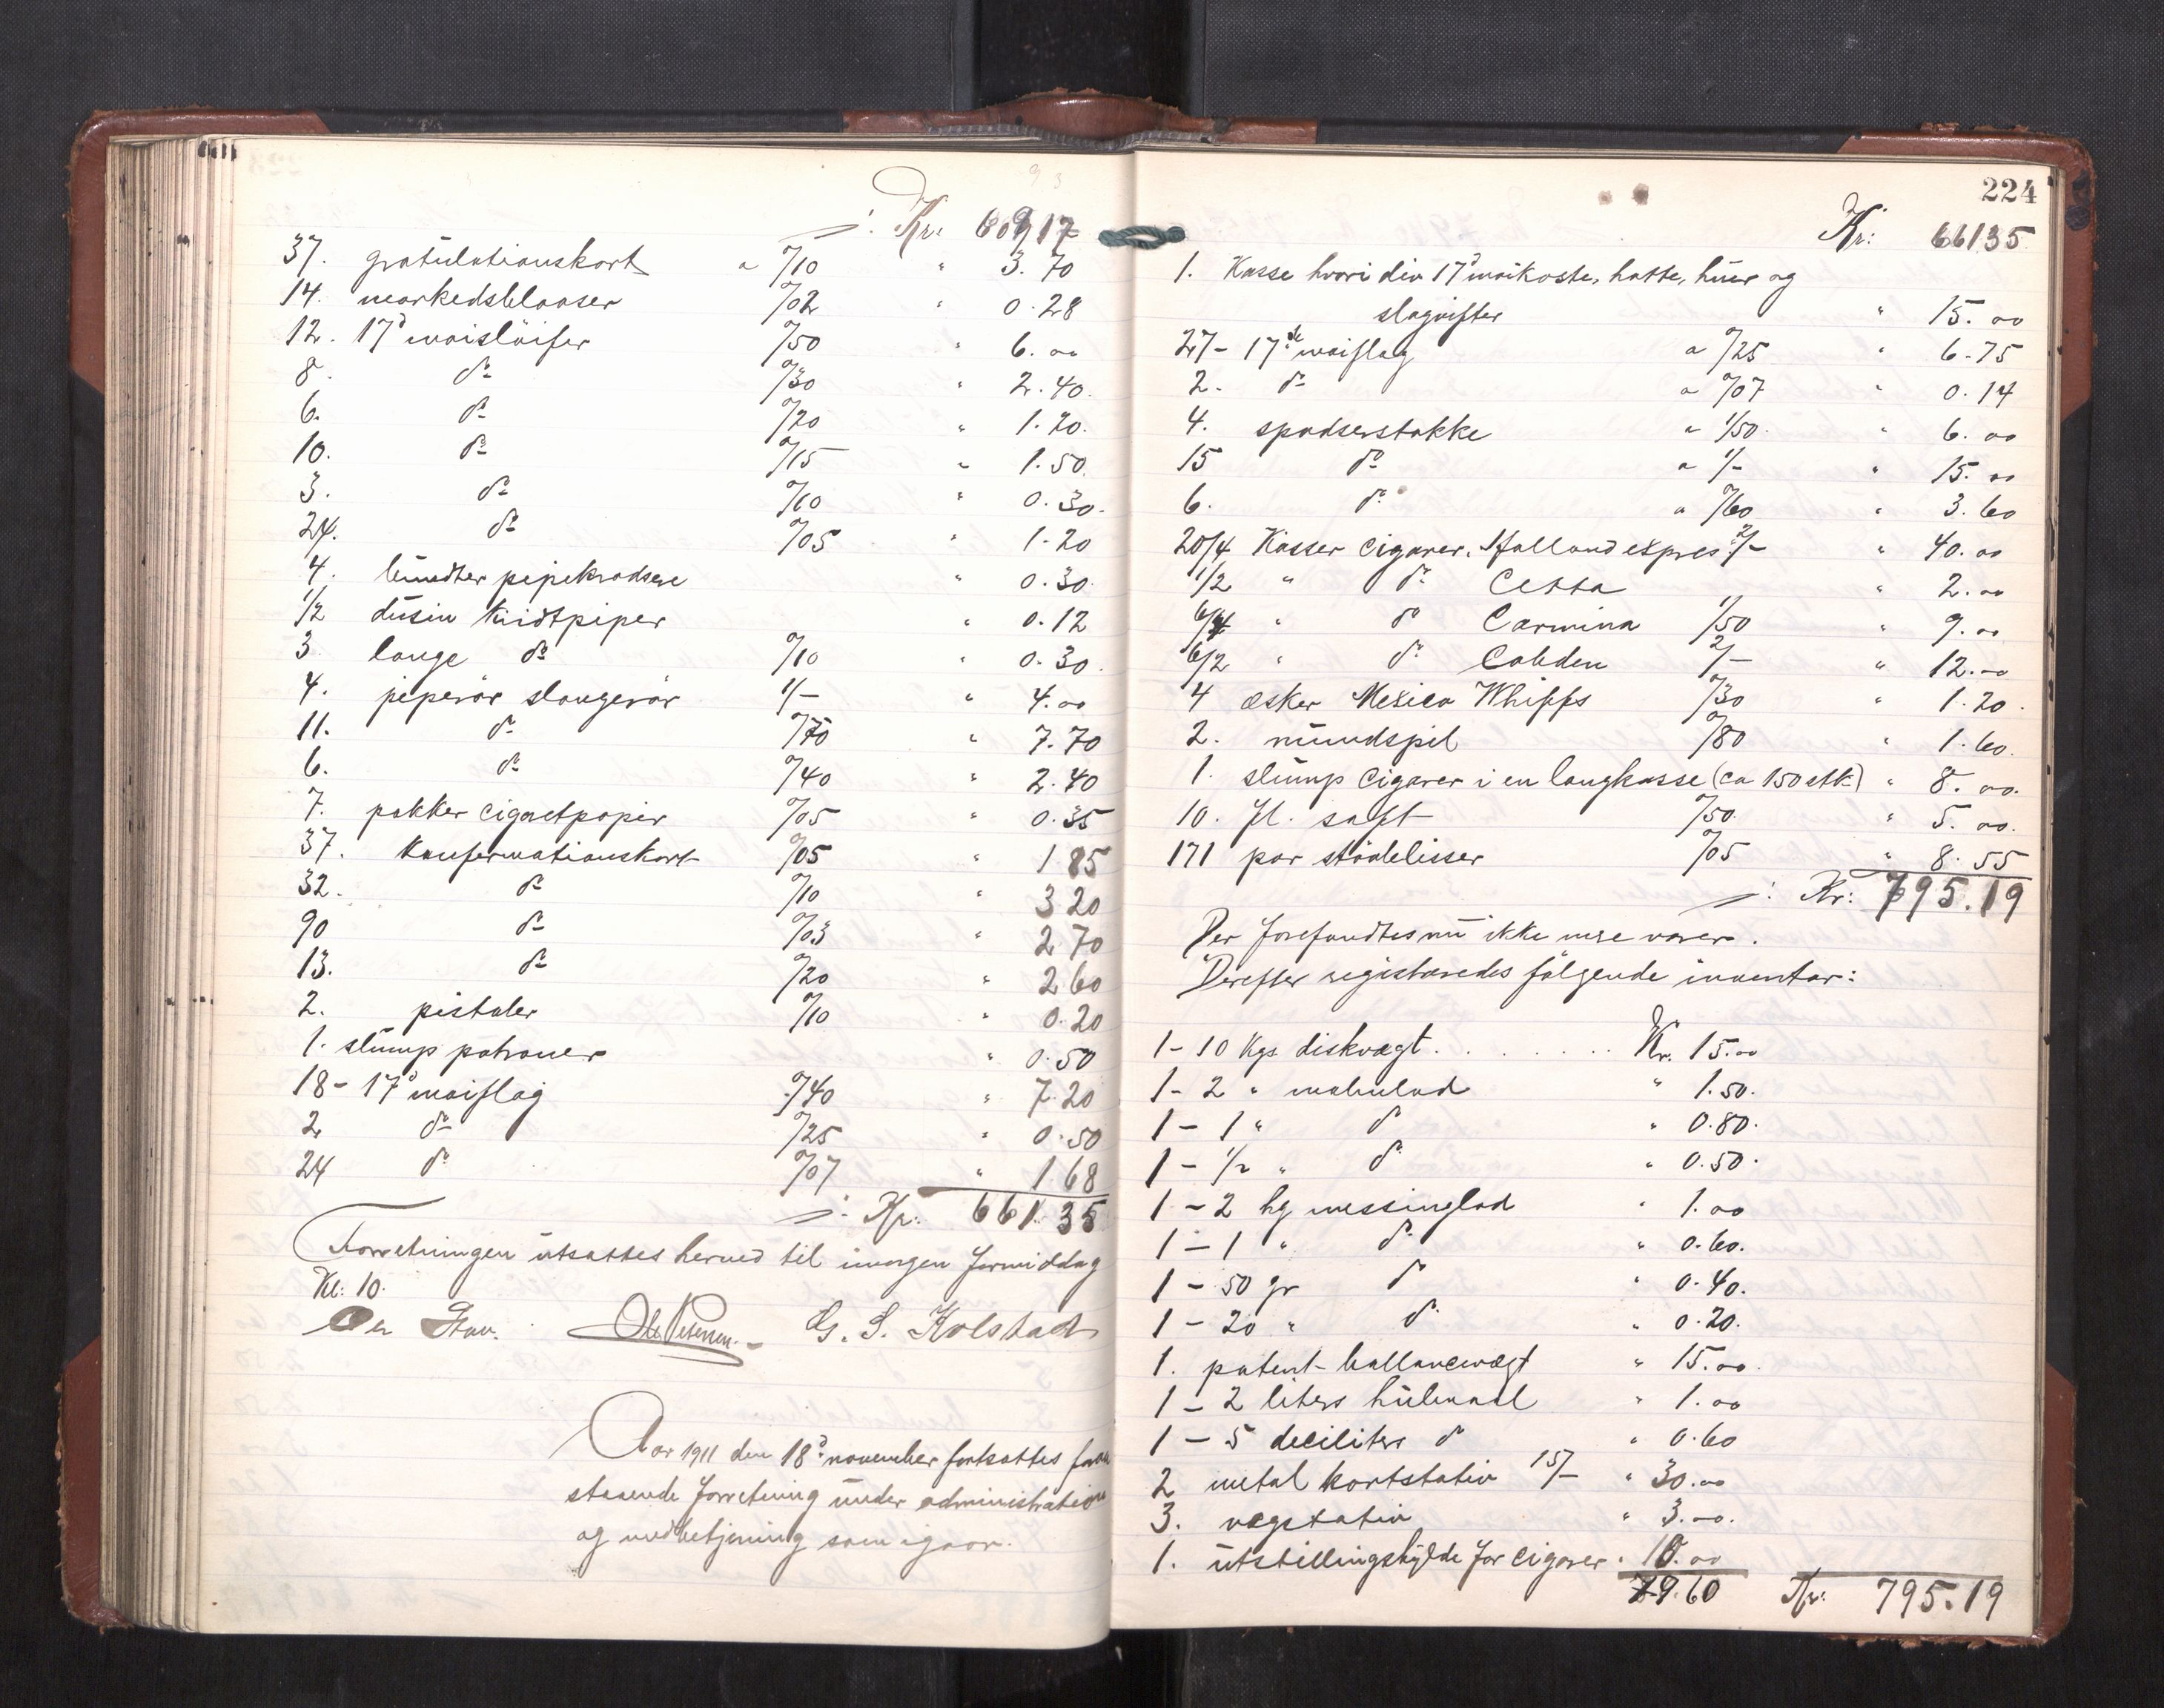 Kr: 609 17
37. gratulationskort a 0/10 " 3.70
14. markedsblaaser 0/02 " 0.28
12. 17d maislöifer 0/50 " 6.00
8. do 0/30 " 2.40.
6. do 0/20 " 1.20.
10. do 0/15 " 1.50.
3. do 0/10 " 0.30.
24. do 0/05 " 1.20
4. bundter pipekradsere " 0.30.
1/2 dusin kridtpiper " 0.12
3. lange do 0/10 " 0.30.
4. piperör slangerör 1/- " 4.00
11. do 0/70 " 7.70
6. do 0/40 " 2.40
7. pakker cigaretpapir 0/05 " 0.35
37. konfirmationskort 0/05 " 1 85
32. do 0/10 " 3 20
90 do 0/03 " 2 70
13. do 0/20 " 2 60
2. pistoler 0/10 " 0.20
1. slump patroner " 0.50
18 - 17d maiflag 0/40 " 7.20
2. do 0/25 " 0.50
24 do 0/07 " 1 68
Kr. 661.35
Forretningen utsattes herved til imorgen formiddag
Kl: 10.
Ole Petersen. G. S. Kolstad
Aar 1911 den 18d november fortsattes
staaende forretning under administration
og medbetjening som igaar.
224
Kr: 661 35
1. Kasse hvori div 17d maikoste, hatte, huer og
slagvifter " 15.00
27 - 17de maiflag a 0/25 " 6.75
2. do a 0/07 " 0.14
4. spadserstokke a 1/50 " 6.00
15 do a 1/- " 15.00
6. do a 0/60 " 3.60
20/4 Kasser Cigarer. Holland expres 2/- " 40.00
1/2 " do " 2.00
6/4 " do Carmina 1/50 " 9.00
6/2 " do Cobden 2/- " 12.00
4 æsker Mexico Whiffs 0/30 " 1.20.
2. mundspil 0/80 " 1.60.
1. slump Cigarer i en langkasse (ca 150 stk) " 8.00.
10. fl. saft 0/50 " 5.00.
171 par skolisser 0/05 " 8.55
Kr: 795.19
Der forefandtes nu ikke mere varer.
Derefter registreredes fölgende inventar:
1 - 10 Kgs diskvægt. . . . . . . Kr. 15.00
1 - 2 " malmlod " 1.50.
1 - 1 " do " 0.80.
1 - 1/2 " do " 0.50.
1 - 2 hg messinglod " 1.00
1 - 1 " do " 0.60.
1 - 50 gr do " 0.40.
1 - 20 " do " 0.20.
1. patent-ballancevægt " 15.00.
1 - 2 liters hulmaal " 1.00
1 - 5 deciliters do " 0.60
2 metal kortstativ 15/- " 30.00
3. vægstativ " 3.00.
1. utstillingshylde for cigarer " 10.00
79.60 Kr. 795.19